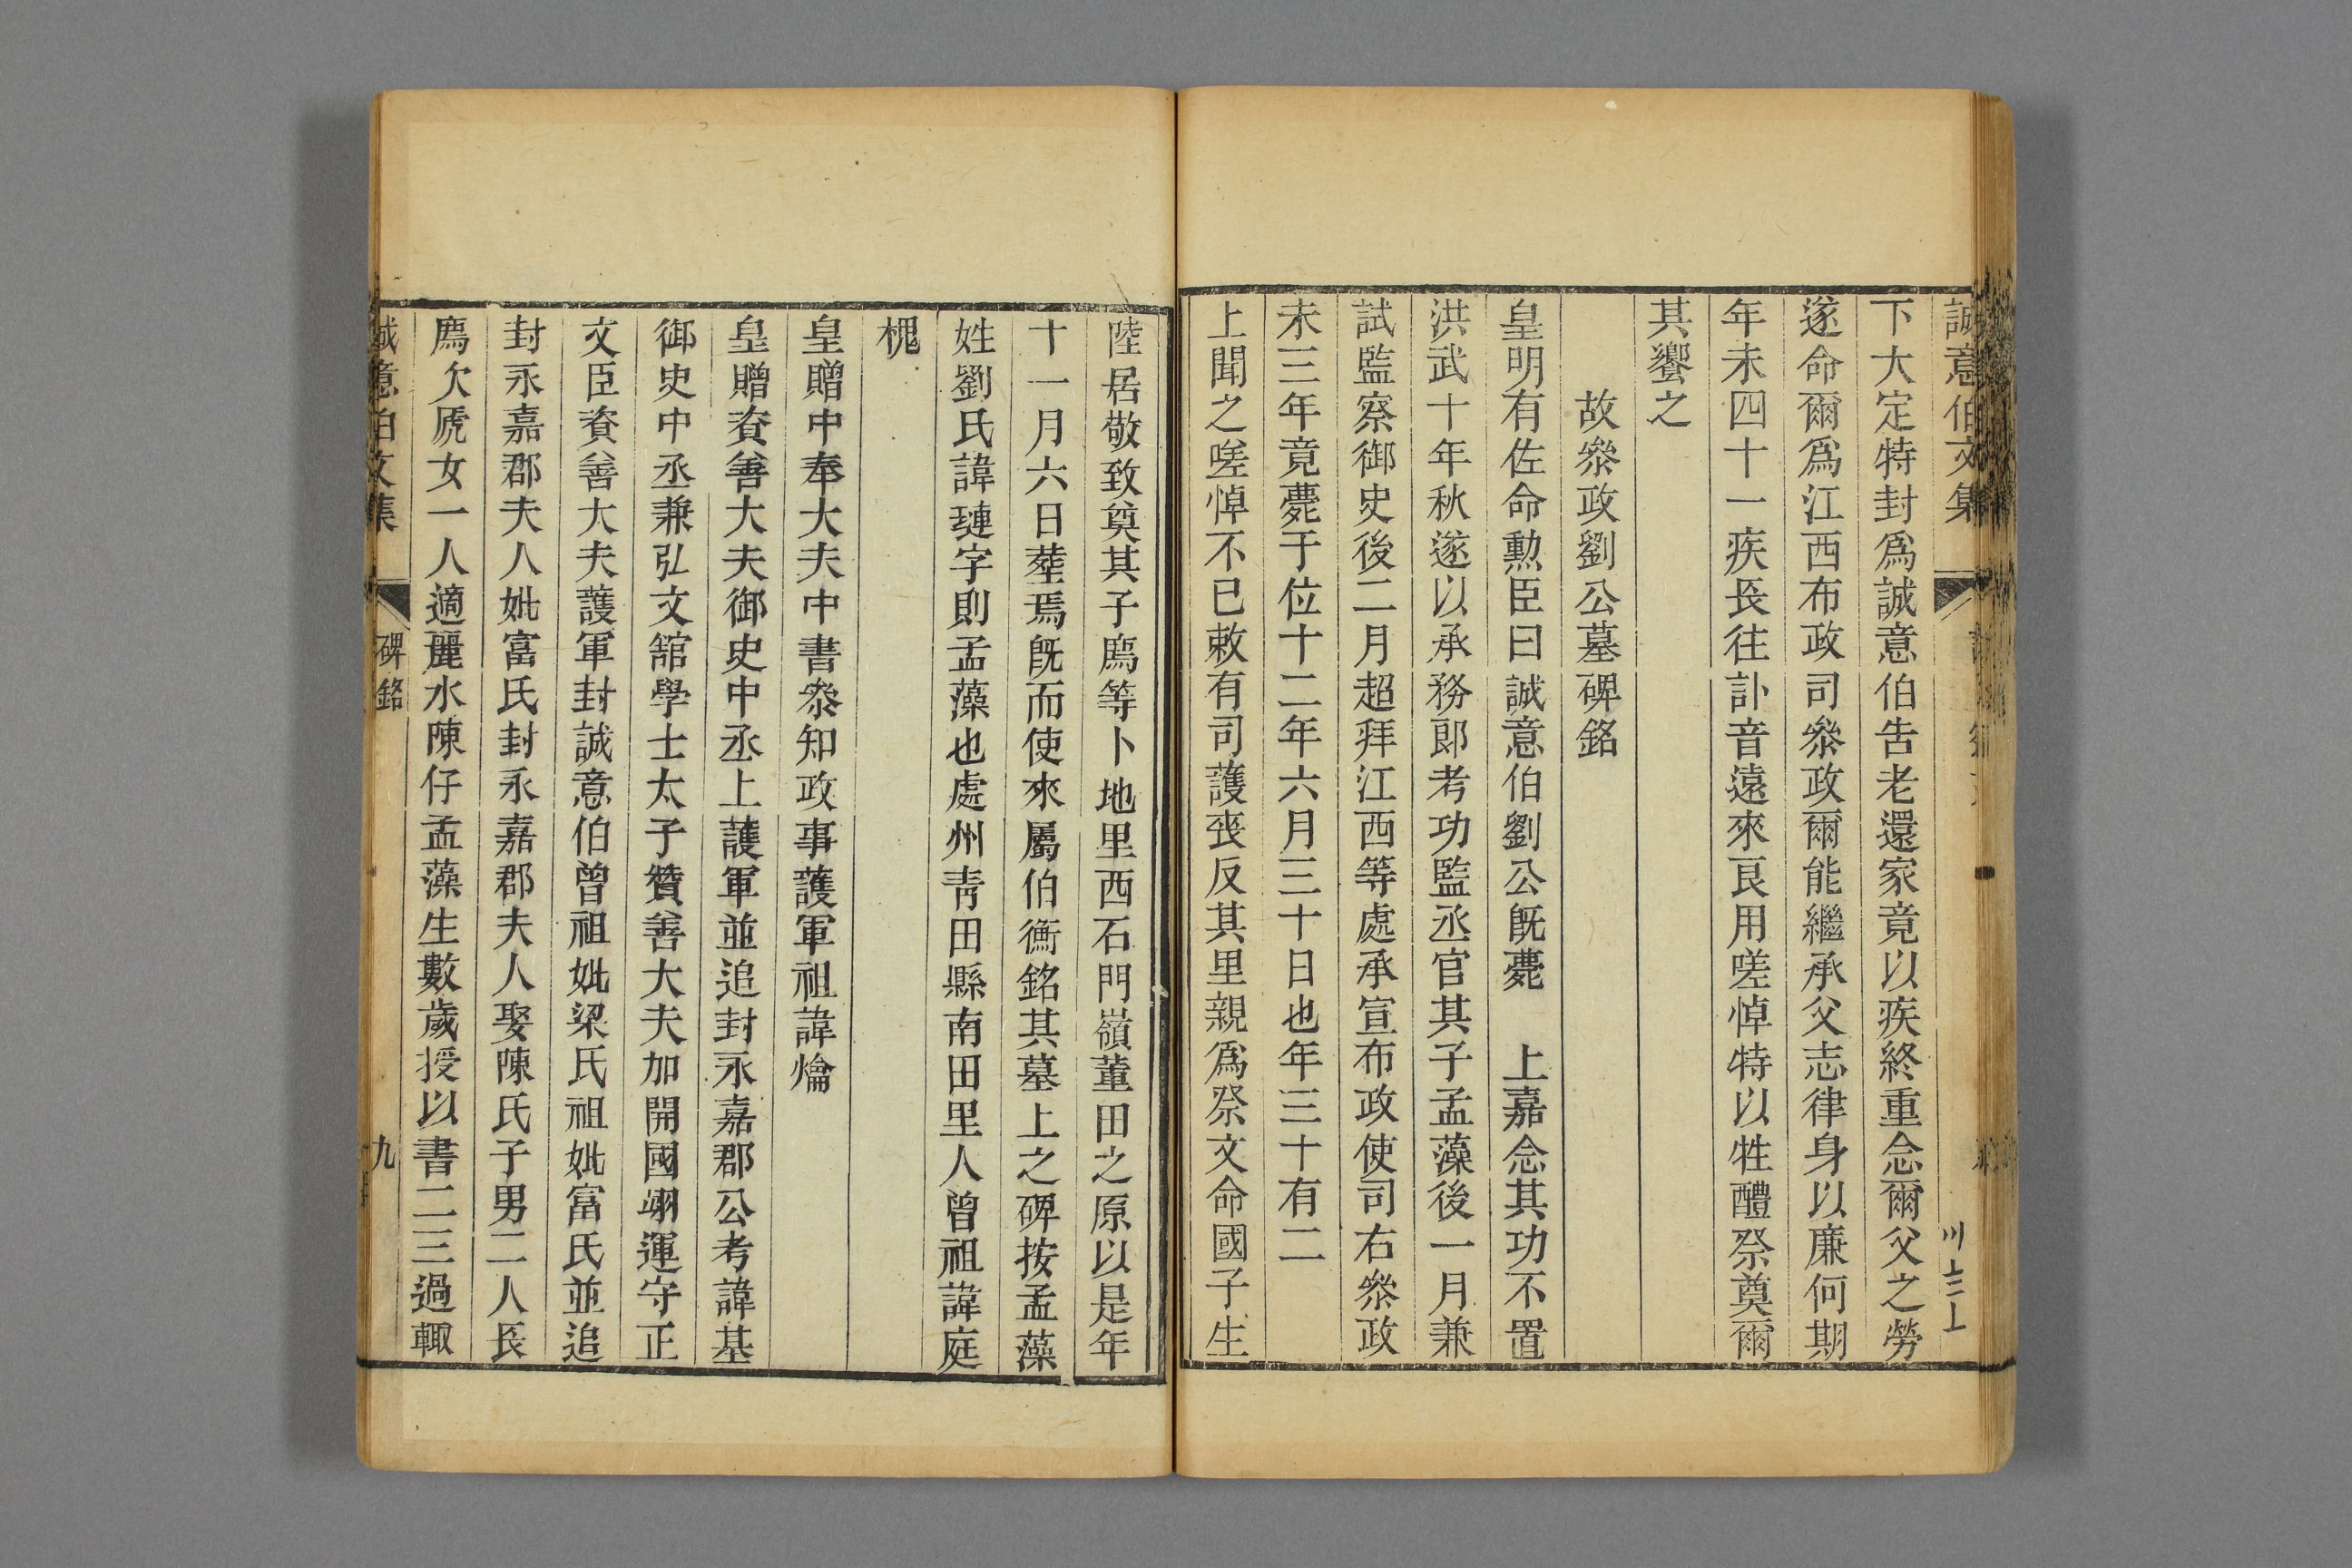 誠意伯文集
下大定特封爲誠意伯告老還家竟以疾終重念爾父之勞
遂命爾爲江西布政司叅政爾能繼承父志律身以廉何期
年未四十一疾長往訃音遠來良用嗟悼特以牲醴祭奠爾
其饗之
故叅政劉公墓碑銘
皇明有佐命勲臣曰誠意伯劉公旣薨　上嘉念其功不置
洪武十年秋遂以承務郎考功監丞官其子孟藻後一月兼
試監察御史後二月超拜江西等處承宣布政使司右叅政
未三年竟薨于位十二年六月三十日也年三十有二
上聞之嗟悼不已敕有司護喪反其里親爲祭文命國子生
陸居敬致奠其子廌等卜地里西石門嶺董田之原以是年
十一月六日塟焉旣而使來屬伯衡銘其墓上之碑按孟藻
姓劉氏諱璉字則孟藻也處州青田縣南田里人曾祖諱庭
槐
皇贈中奉大夫中書叅知政事護軍祖諱爚
皇贈資善大夫御史中丞上護軍並追封永嘉郡公考諱基
御史中丞兼弘文舘學士太子贊善大夫加開國翊運守正
文臣資善大夫護軍封誠意伯曾祖妣梁氏祖妣富氏並追
封永嘉郡夫人妣富氏封永嘉郡夫人娶陳氏子男二人長
廌次虒女一人適麗水陳仔孟藻生數歲授以書二三過輒
誠意伯文集
碑銘
九